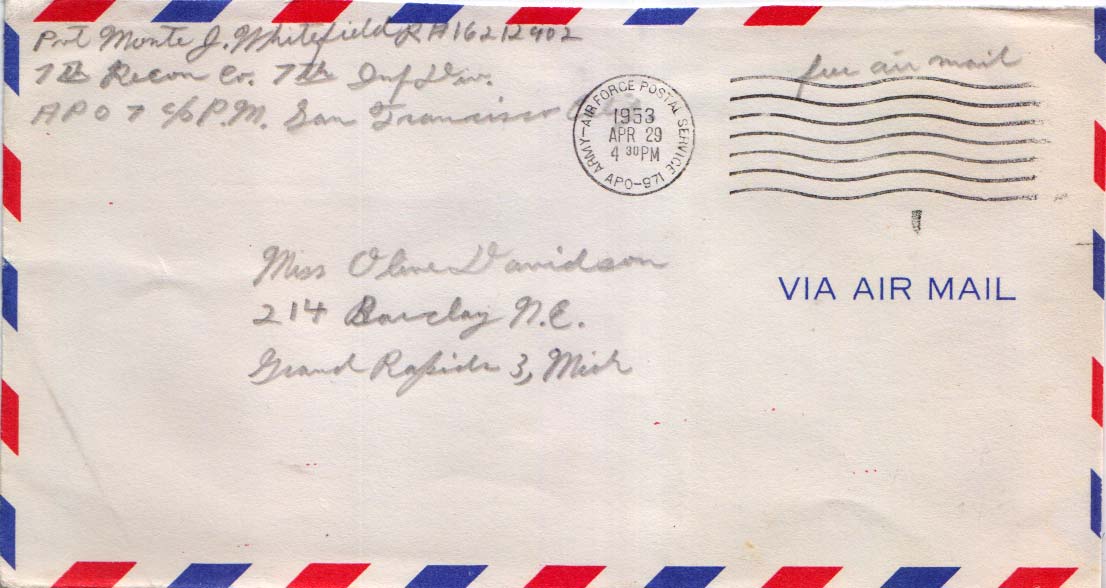 Pvt Monte J. Whitefield RA16212902
7th Recon Co. 7th Inf Div.
APO 7 c/o P.M. San Francisco Calif
free air mail
ARMY-AIR FORCE POSTAL SERVICE
1953
APR 29
4 30 PM
APO-971
Miss Olive Davidson
214 Barclay N.E.
Grand Rapids 3, Mich
VIA AIR MAIL